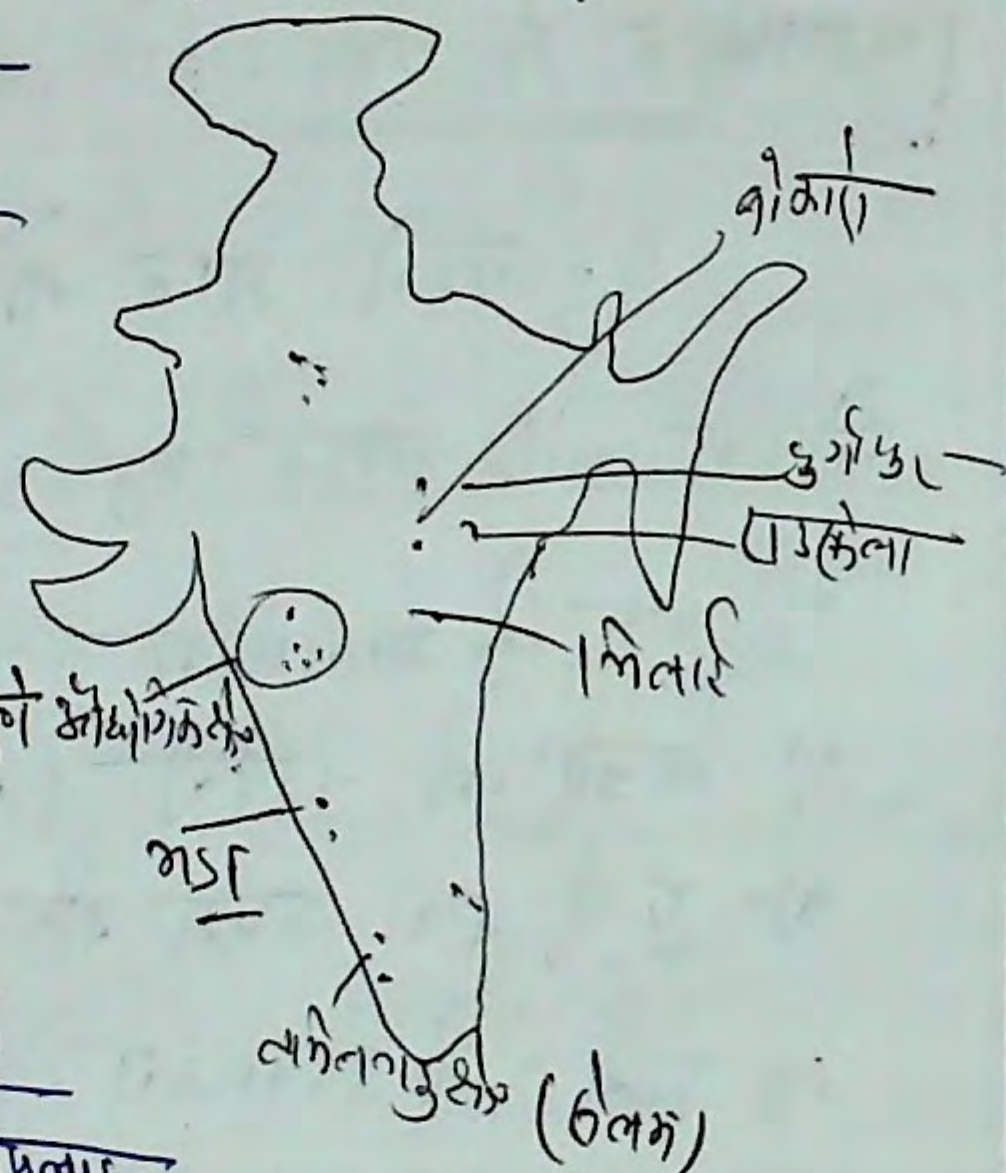 बोकारो
दुर्गापुर
राउरकेला
भिलाई
औद्योगिक क्षेत्र
तमिलनाडु क्षेत्र (सेलम)